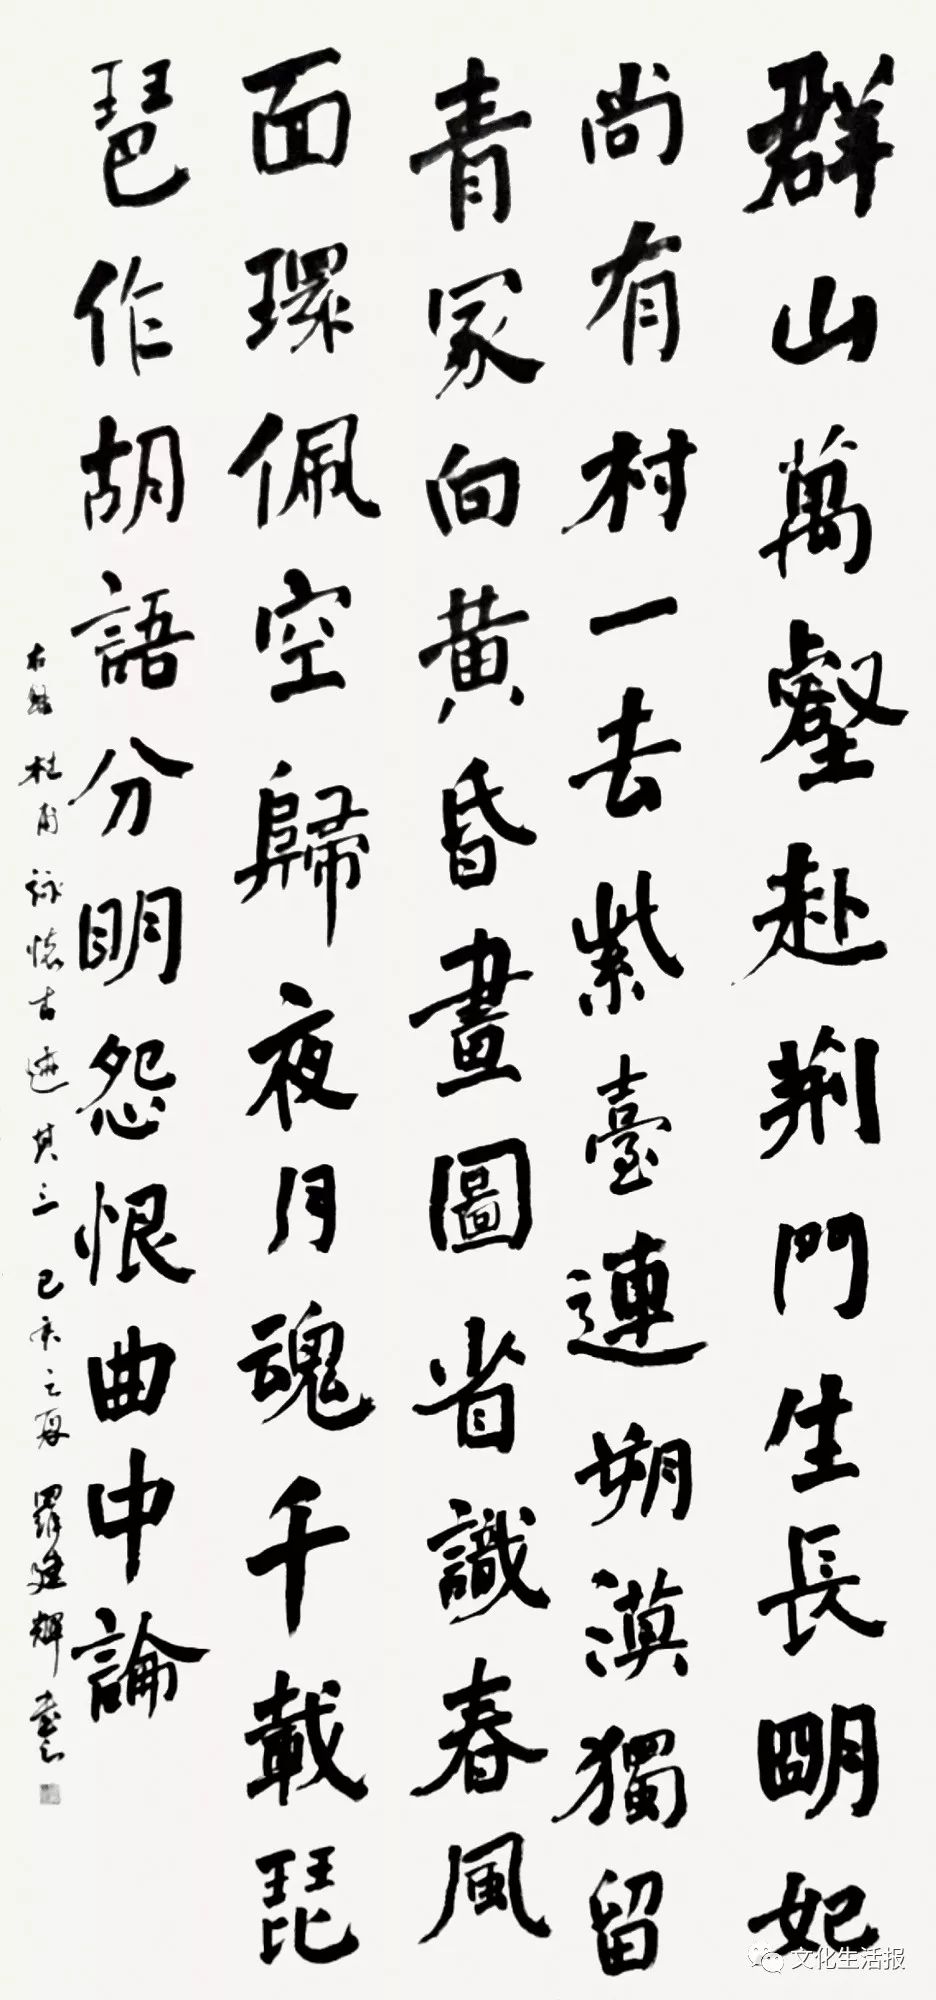 群山萬壑赴荊門生長明妃
尚有村一去紫臺連朔漠獨留
青冢向黃昏畫圖省識春風
面環佩空歸夜月魂千載琵
琶作胡語分明怨恨曲中論
右錄杜甫詠懷古迹其三己亥之夏羅建輝書
文化生活报